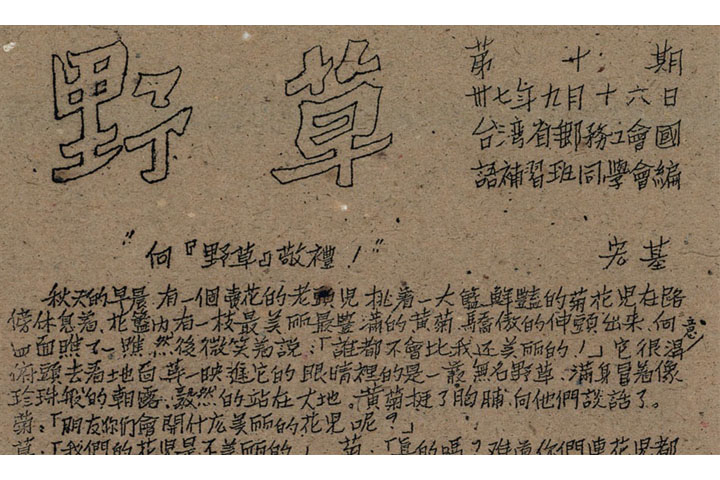 野草
第十期
卅七年九月十六日
台湾省郵務工會國
語補習班同學會編
"向『野草』敬禮！"
宏基
秋天的早晨，有一個賣花的老頭兒挑着一大籃鮮豔的菊花兒在路
傍休息着，花籃内有一枝最美丽最豐満的黄菊，驕傲的伸頭出来，向
四面瞧了一瞧，然後微笑着説：「誰都不會比我还美丽的！」它很得意
俯頭去看地面草一映進它的眼睛裡的是一叢無名野草，満身冒着像
珍珠般的朝露，毅然的站在大地。黄菊挺了胸脯，向他們談話了。
菊：「朋友你们會開什庅美丽的花兒呢？」
草：「我們的花兒是不美丽的」 菊：「真的嗎？难道你們連花兒都